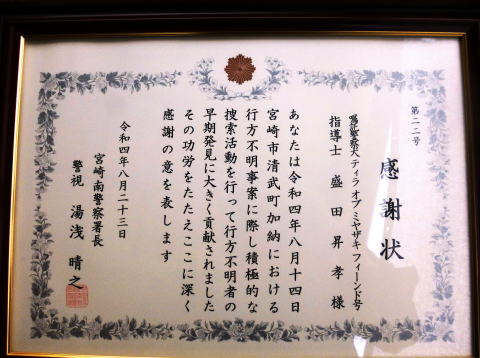 第二二号
感謝状
嘱託警察犬 ティラ オブ ミヤザキ フィーンド号
指導士 盛田昇孝様
あなたは令和四年八月十四日
宮崎市清武町加納における
行方不明事案に際し積極的な
捜索活動を行って行方不明者の
早期発見に大きく貢献されました
その功労をたたえここに深く
感謝の意を表します
令和四年八月二十三日
宮崎南警察署長
警視 湯浅晴之